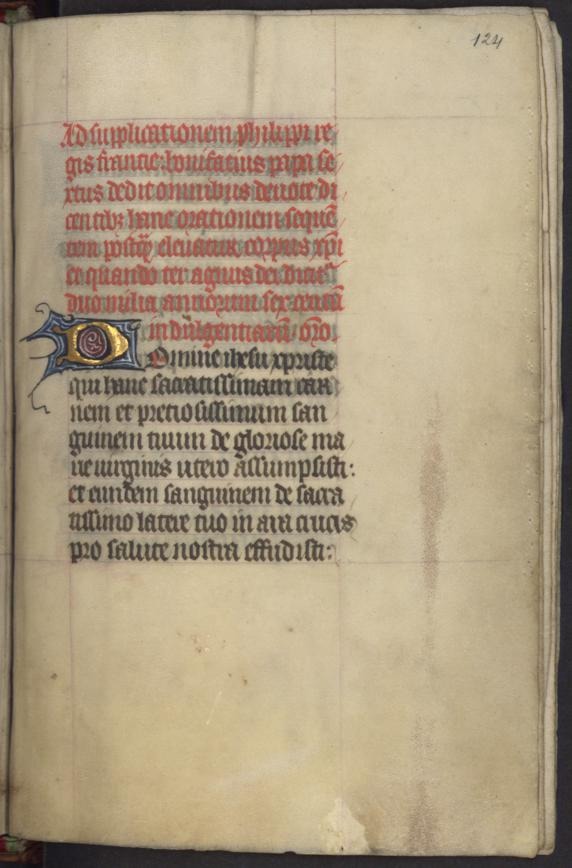 124
Ad supplicationem philippi re
gis francie: bonifacius papa se
xtus dedit omnibus deuote di
centibꝫ hanc orationem sequē
tem postꝙ̄ eleuatur corpus xp̄i
et quando ter agnus dei dicit᷑
duo milia annorum sex centū
indulgentiarū. or̄o.
Domine ihesu xpriste
qui hanc sacratissimam car
nem et preciosissimum san
guinem tuum de gloriose ma
rie uirginis utero assumpsisti:
et eundem sanguinem de sacra
tissimo latere tuo in ara crucis
pro salute nostra effudisti: